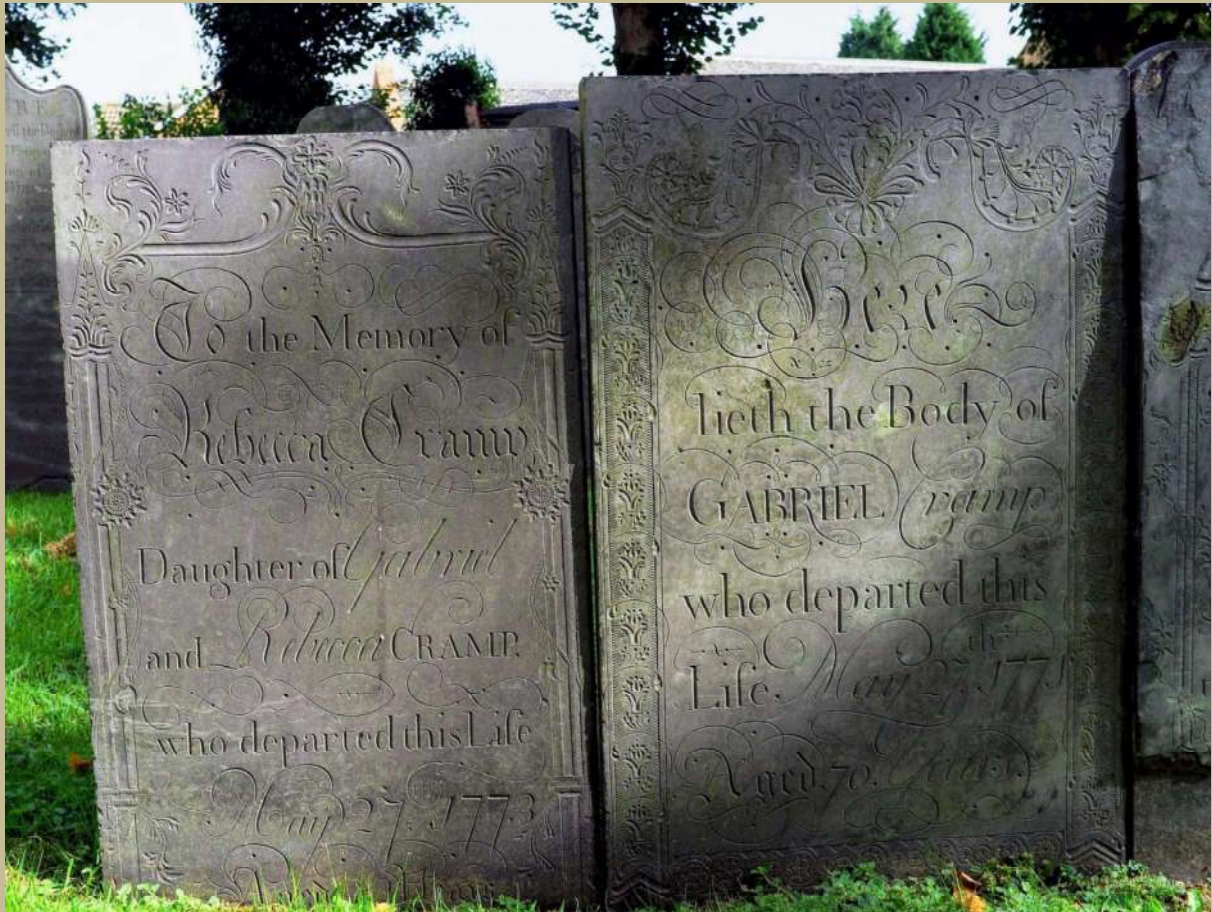 To the Memory of
Rebecca Cramp
Daughter of Gabriel
and Rebecca CRAMP.
who departed this Life
May 27. 1773
Here
lieth the Body of
GABRIEL Cramp
who departed this
Life May 27th 1771
Aged 70. Years.